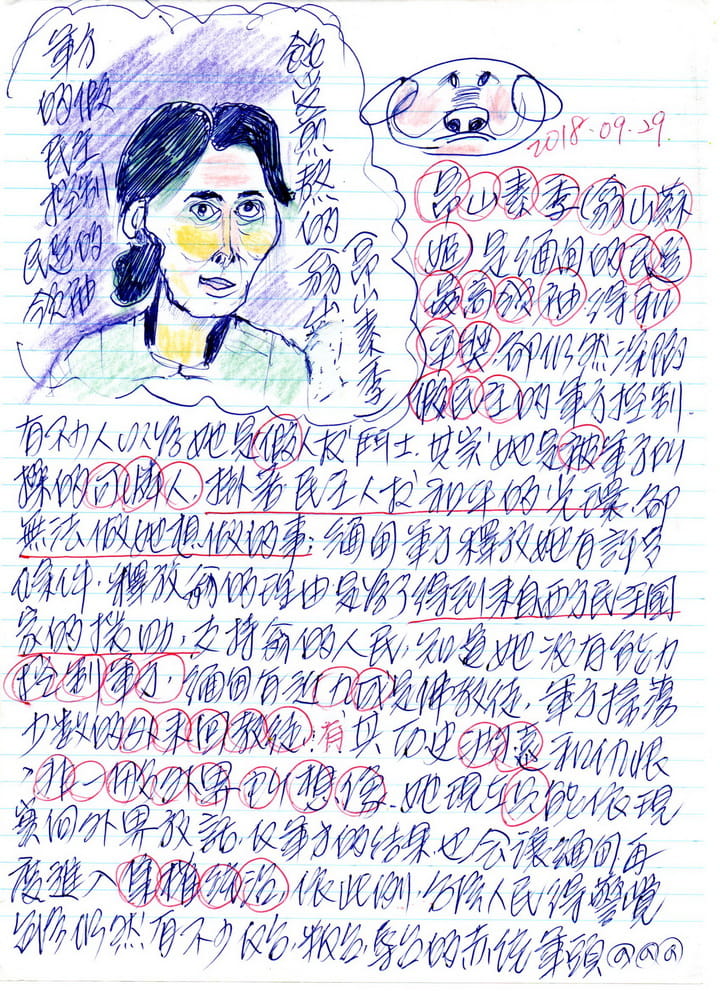 軍方
的假
民主
控制
民選的
領袖
飽受煎熬的翁山
昂山素季
2018.09.29.
昂山素季(翁山蘇
姬)是緬甸的民選
最高領袖,得和
平獎,卻仍然深陷
假民主的軍方控制.
有不少人以為她是假人权鬥士.其实她是被軍方叫
操的可憐人,掛著民主人权和平的光環,卻
無法做她想做的事;緬甸軍方釋放她有許多
條件,釋放翁的理由是為了得到來自西方民主國
家的援助,支持翁的人民,知道她没有能力
控制軍方,緬甸有近九成是佛教徒,軍方掃蕩
少数的外來回教徒,有其历史淵源和仇恨
,非一般外界可以想像.她現在只能依現
實向外界放話,反軍方的結果,也会讓緬甸再
度進入集權統治,依此例,台灣人民得警覺
台灣仍然有不少仇台,叛台,辱台的赤统軍頭